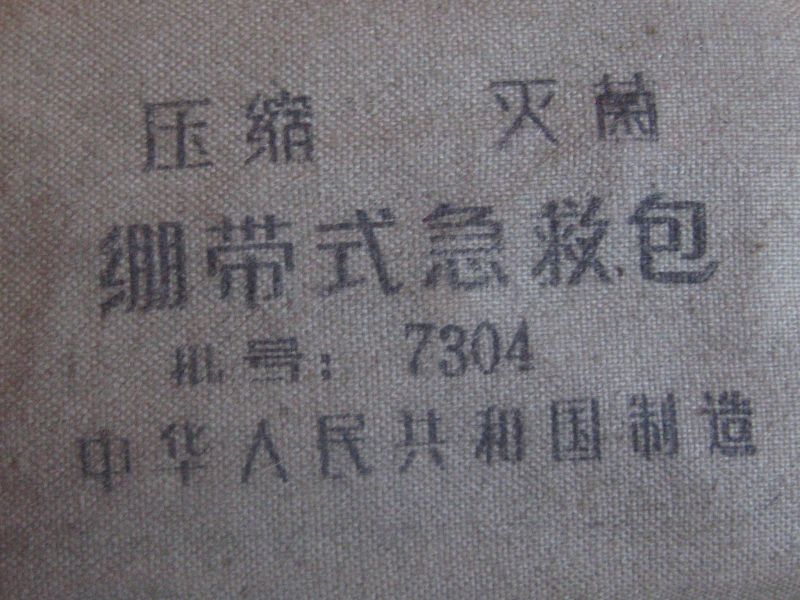 压缩 灭菌
绷带式急救包
批号：7304
中华人民共和国制造